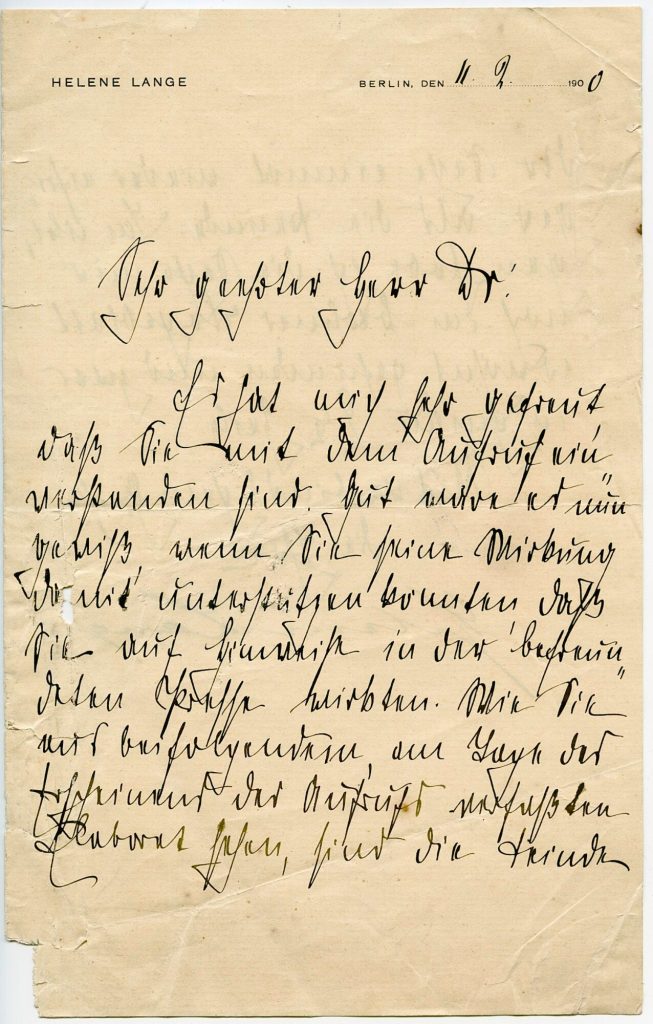 HELENE LANGE
BERLIN, DEN 11. 2. 1900
Sehr geehrter Herr Dr!
Es hat mich sehr gefreut,
daß Sie mit dem Aufruf ein
verstanden sind. Gut wäre es nun
gewiß, wenn Sie seine Wirkung
damit unterstützen könnten daß
Sie auf Hinweise in der befreun
deten Presse wirkten. Wie Sie
aus beifolgendem, am Tage des
Erscheinens des Aufrufs verfaßten
Elaborat sehen, sind die Feinde